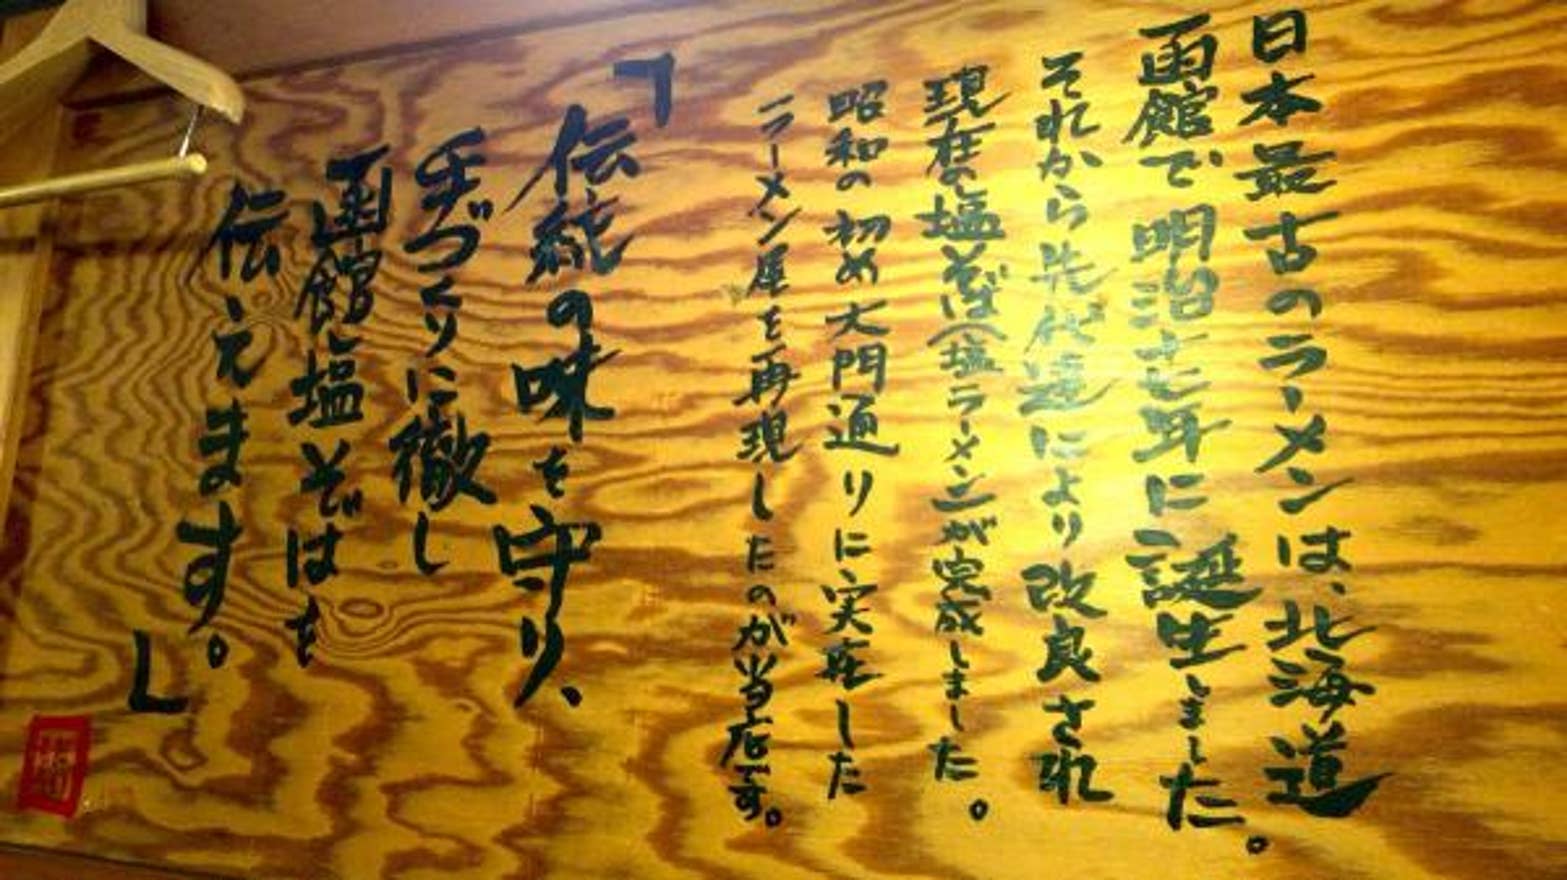 日本最古のラーメンは、北海道
函館で明治十七年に誕生しました。
それから先代達により改良され
現在の塩そば(塩ラーメン)が完成しました。
昭和の初め大門通りに実在した
ラーメン屋を再現したのが当店です。
「伝統の味を守り、
手づくりに徹し
函館塩そばを
伝えます。」